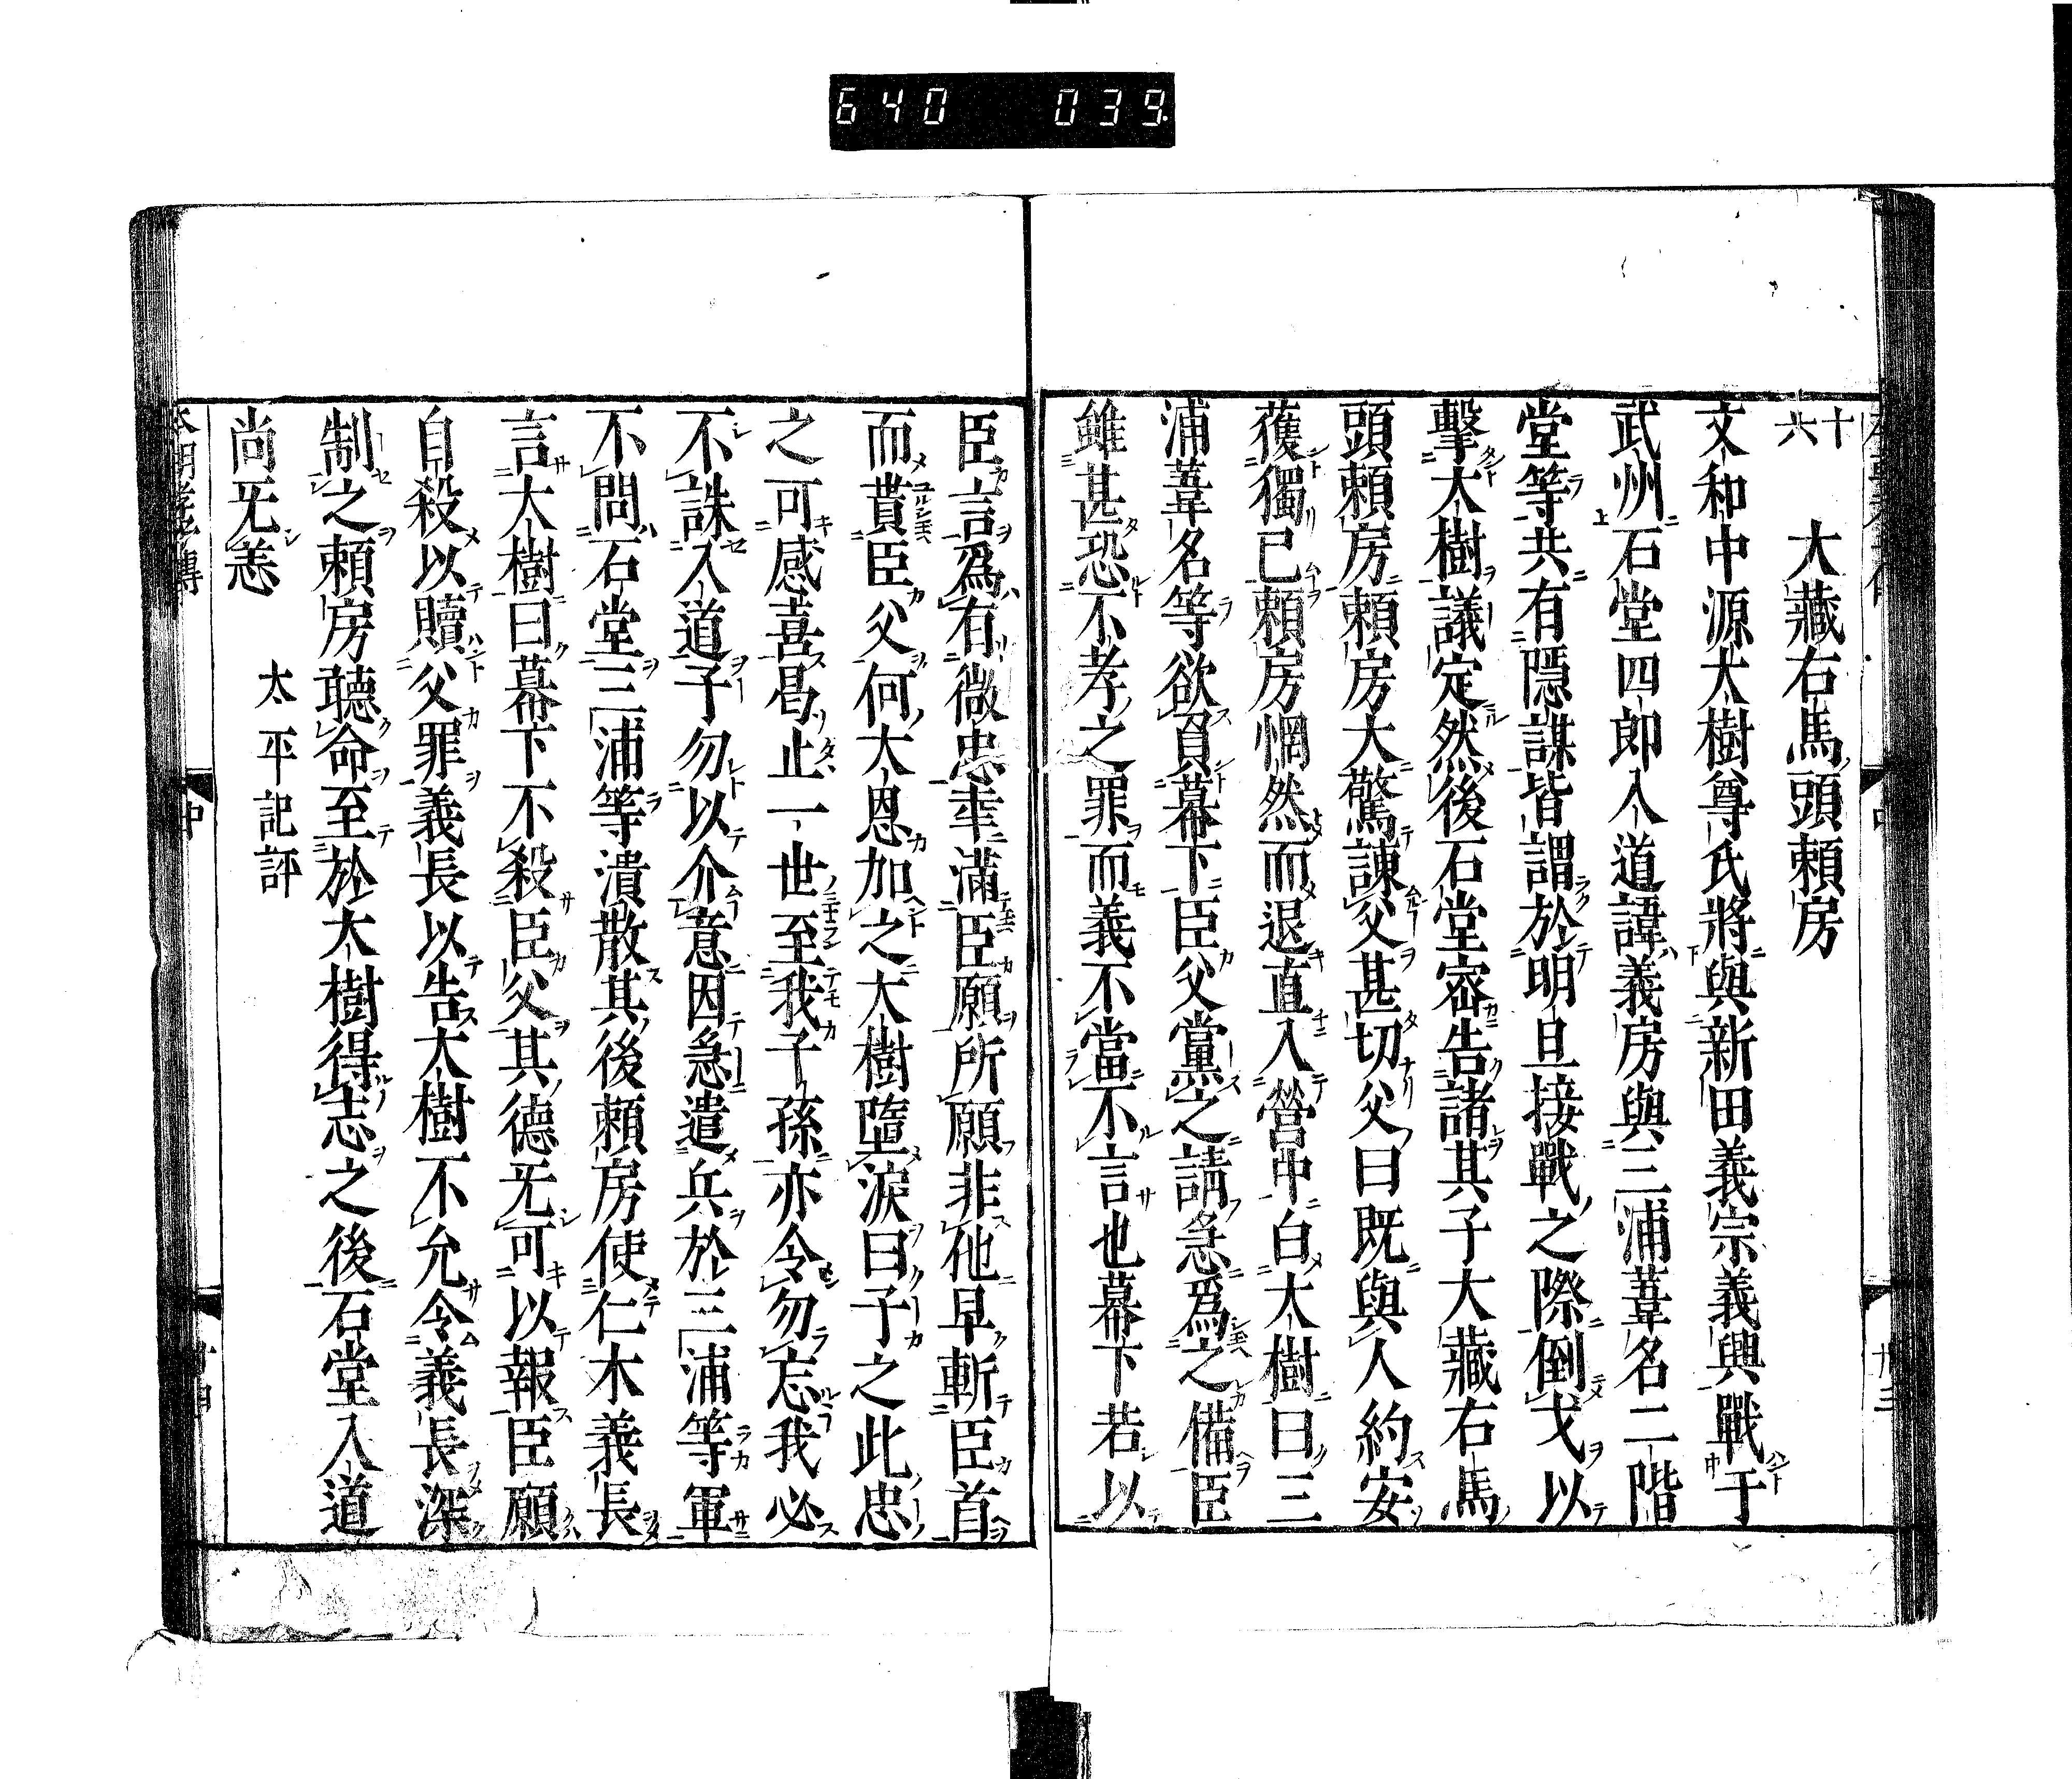 640 039.
十六 大藏右馬頭頼房
文和中源大樹尊氏將與新田義宗義興戰于
武州石堂四郎入道諱義房與三浦葦名二階
堂等共有隱謀皆謂於明旦接戰之際倒戈以
擊大樹議定然後石堂密告諸其子大藏右馬
頭頼房頼房大驚諌父甚切父曰既與人約安
獲獨已頼房惘然而退直入營中白大樹曰三
浦葦名等欲負幕下臣父黨之請急爲之備臣
雖甚恐不孝之罪而義不當不言也幕下若以
臣言爲有微忠幸滿臣願所願非他早斬臣首
而貰臣父何大恩加之大樹墮淚曰子之此忠
之可感喜曷止一世至我子孫亦令勿忘我必
不誅入道子勿以介意因急遣兵於三浦等軍
不問石堂三浦等潰散其後頼房使仁木義長
言大樹曰幕下不殺臣父其德旡可以報臣願
自殺以贖父罪義長以告大樹不允令義長深
制之頼房聽命至於大樹得志之後石堂入道
尚旡恙 太平記評
本朝孝子傳 中